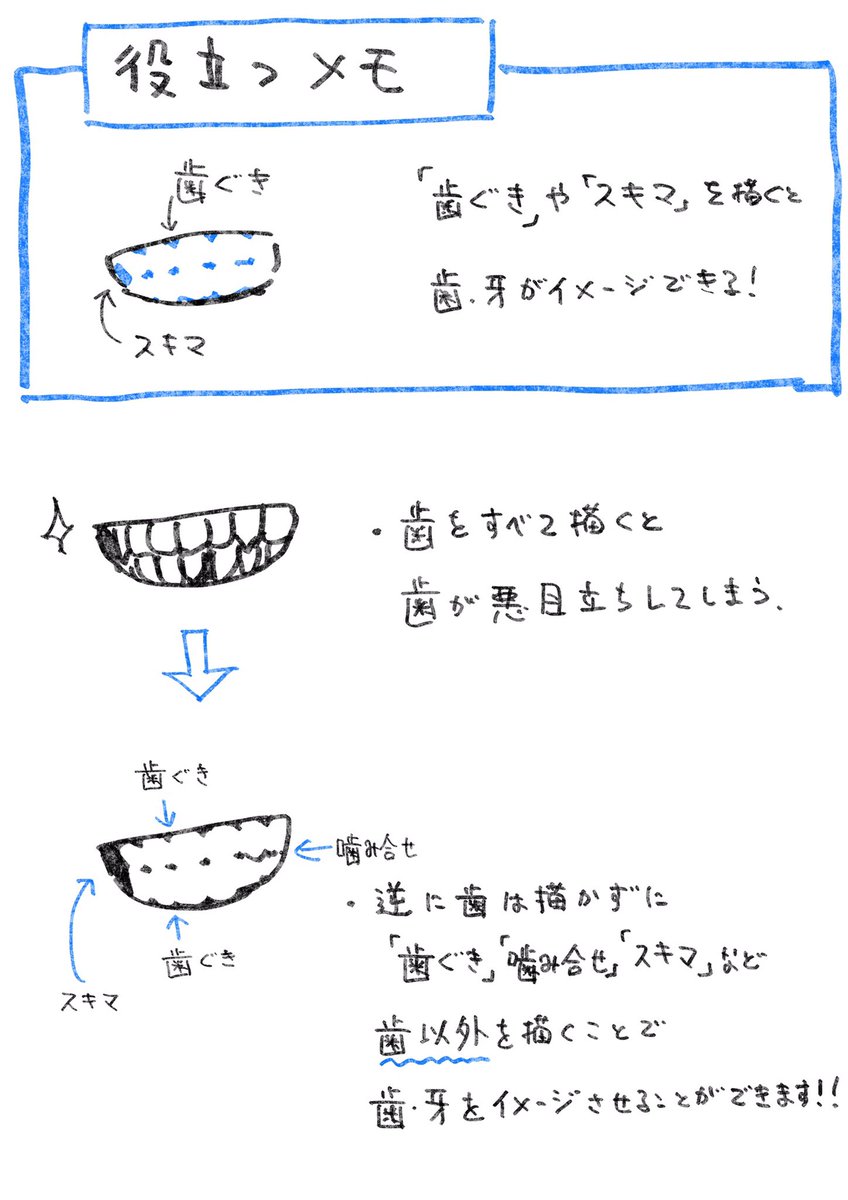 役立つメモ
歯ぐき
スキマ
「歯ぐき」や「スキマ」を描くと
歯・牙がイメージできる!
・歯をすべて描くと
歯が悪目立ちしてしまう、
歯ぐき
噛み合せ
歯ぐき
スキマ
・逆に歯は描かずに
「歯ぐき」「噛み合せ」「スキマ」など
歯以外を描くことで
歯・牙をイメージさせることができます!!